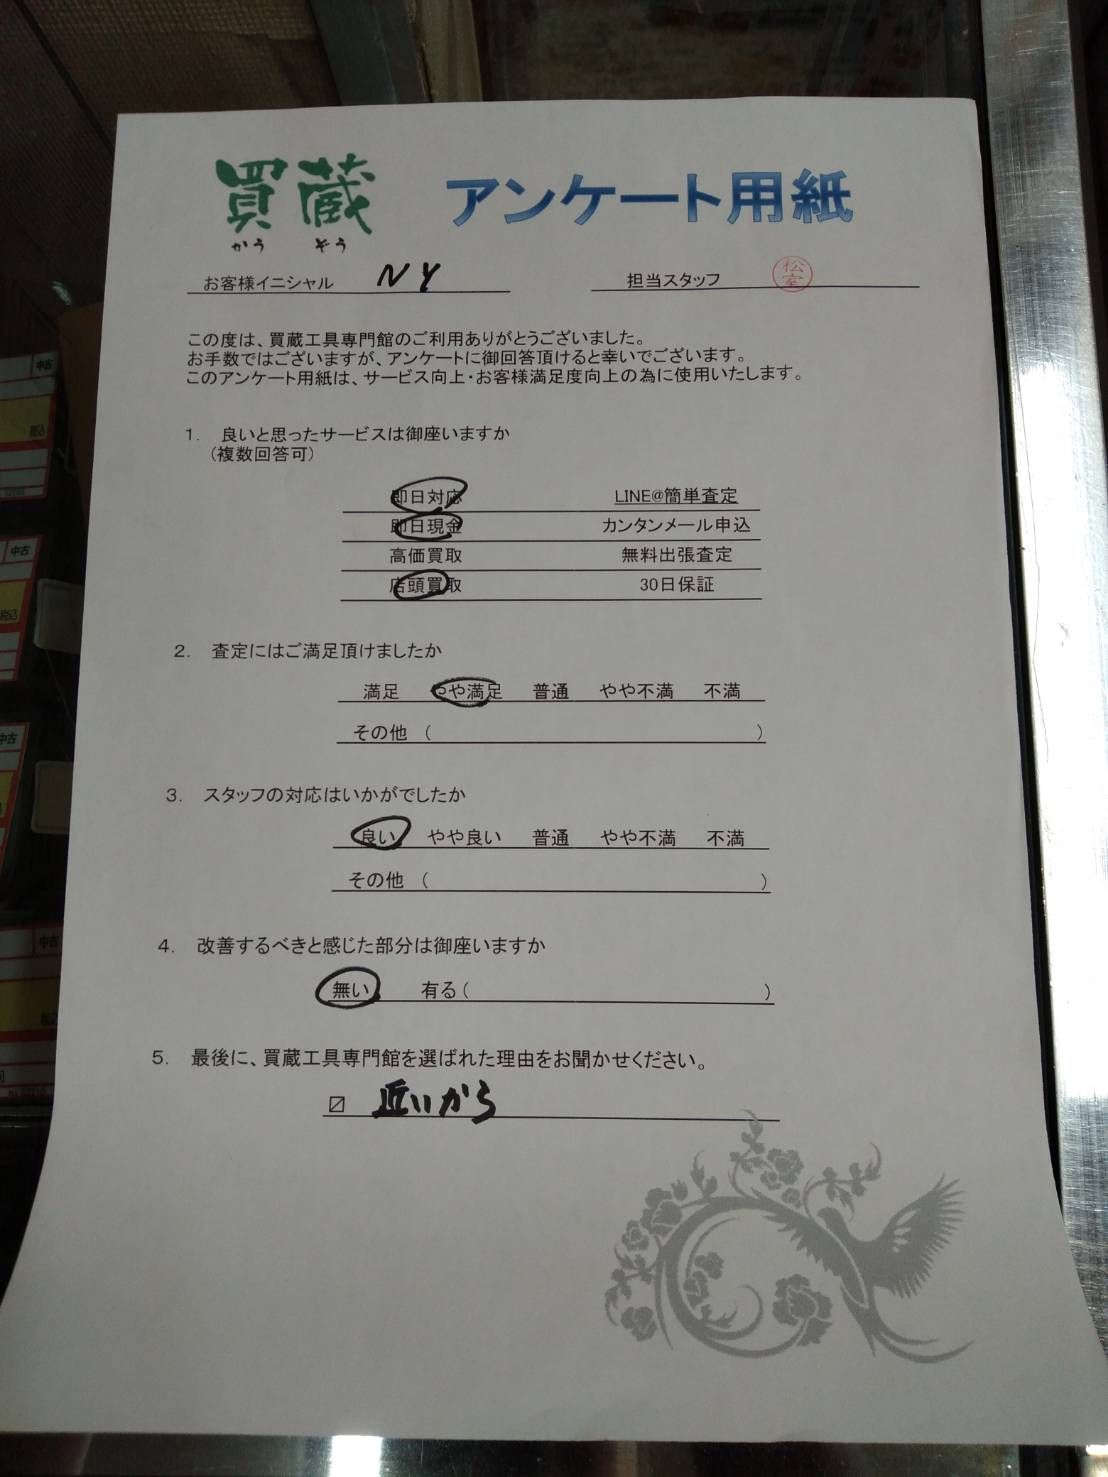 買蔵 アンケート用紙
かう ぞう
お客様イニシャル NY 担当スタッフ 松室
この度は、買蔵工具専門館のご利用ありがとうございました。
お手数ではございますが、アンケートに御回答頂けると幸いでございます。
このアンケート用紙は、サービス向上・お客様満足度向上の為に使用いたします。
1. 良いと思ったサービスは御座いますか
(複数回答可)
即日対応 LINE@簡単査定
即日現金 カンタンメール申込
高価買取 無料出張査定
店頭買取 30日保証
2. 査定にはご満足頂けましたか
満足 やや満足 普通 やや不満 不満
その他 ( )
3. スタッフの対応はいかがでしたか
良い やや良い 普通 やや不満 不満
その他 ( )
4. 改善するべきと感じた部分は御座いますか
無い 有る( )
5. 最後に、買蔵工具専門館を選ばれた理由をお聞かせください。
☑ 近いから
中古
税込
中古
税込
中古
中古